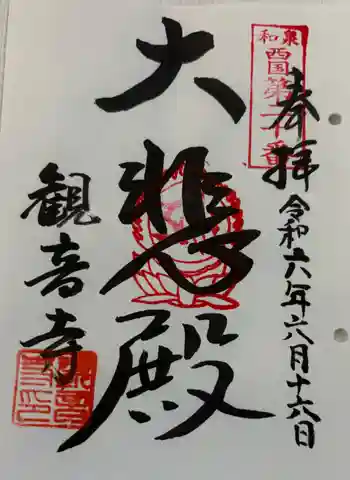 和泉
西国第二十番
奉拝
令和六年六月十六日
大悲殿
観音寺